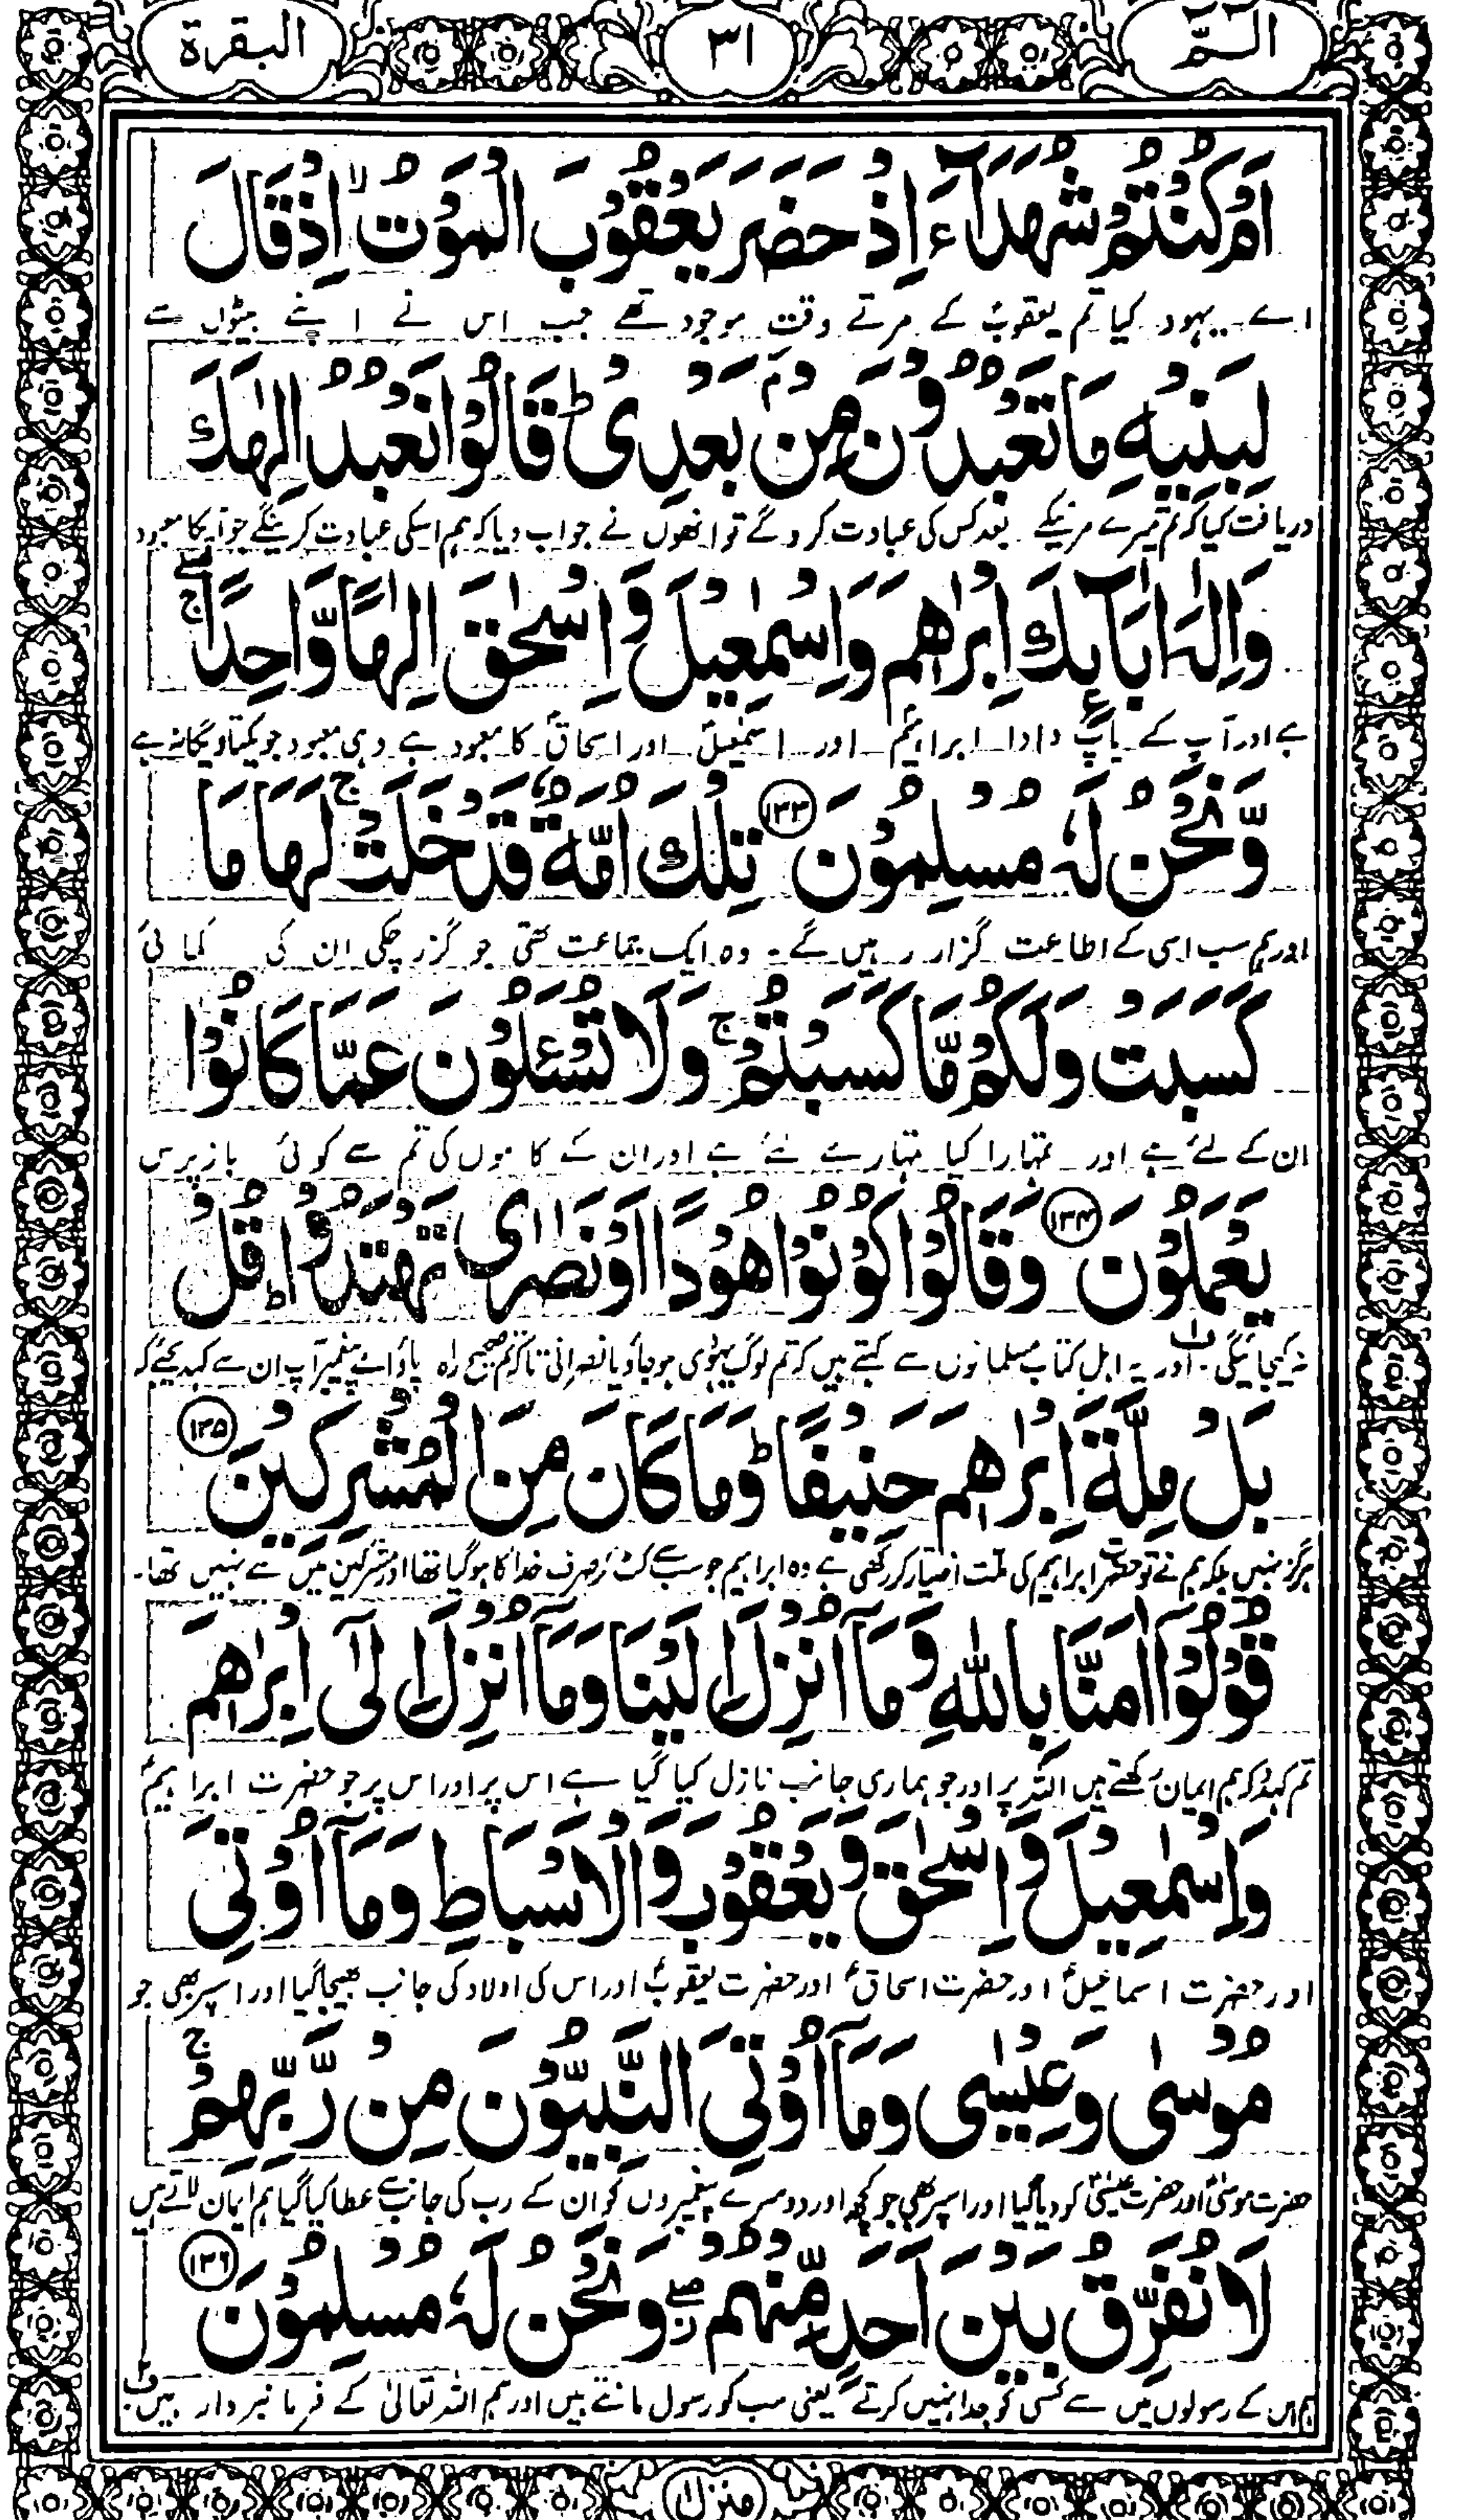 الٓمّٓ ٣١ البقرة
اَمْ كُنْتُمْ شُهَدَآءَ اِذْ حَضَرَ يَعْقُوْبَ الْمَوْتُ ۙ اِذْ قَالَ
اے یہود کیا تم یعقوبؑ کے مرتے وقت موجود تھے جب اس نے اپنے بیٹوں سے
لِبَنِيْهِ مَا تَعْبُدُوْنَ مِنْۢ بَعْدِيْ ؕ قَالُوْا نَعْبُدُ اِلٰهَكَ
دریافت کیا کہ تم میرے مرنیکے بعد کس کی عبادت کرو گے تو انھوں نے جواب دیا کہ ہم اسکی عبادت کرینگے جو آپکا معبود
وَاِلٰهَ اٰبَآىِٕكَ اِبْرٰهٖمَ وَاِسْمٰعِيْلَ وَاِسْحٰقَ اِلٰهًا وَّاحِدًا ۚۖ
ہے اور آپ کے باپ دادا ابراہیمؑ اور اسمٰعیلؑ اور اسحاقؑ کا معبود ہے وہی معبود جو یکتا و یگانہ ہے
وَّنَحْنُ لَهٗ مُسْلِمُوْنَ ١٣٣ تِلْكَ اُمَّةٌ قَدْ خَلَتْ ۚ لَهَا مَا
اور ہم سب اسی کے اطاعت گزار رہیں گے۔ وہ ایک جماعت تھی جو گزر چکی ان کی کمائی
كَسَبَتْ وَلَكُمْ مَّا كَسَبْتُمْ ۚ وَلَا تُسْـَٔلُوْنَ عَمَّا كَانُوْا
ان کے لئے ہے اور تمہارا کیا تمہارے لئے ہے اور ان کے کاموں کی تم سے کوئی بازپرس
يَعْمَلُوْنَ ١٣٤ وَقَالُوْا كُوْنُوْا هُوْدًا اَوْ نَصٰرٰى تَهْتَدُوْا ؕ قُلْ
نہ کیجائیگی۔ اور یہ اہل کتاب مسلمانوں سے کہتے ہیں کہ تم لوگ یہودی ہوجاؤ یا نصرانی تاکہ تم صحیح راہ پاؤ اے پیغمبر آپ ان سے کہدیجئے کہ
بَلْ مِلَّةَ اِبْرٰهٖمَ حَنِيْفًا ؕ وَمَا كَانَ مِنَ الْمُشْرِكِيْنَ ١٣٥
ہرگز نہیں بلکہ ہم نے تو حضرت ابراہیم کی ملت اختیار کر رکھی ہے وہ ابراہیم جو سب سے کٹ کر صرف خدا کا ہوگیا تھا اور مشرکین میں سے نہیں تھا۔
قُوْلُوْۤا اٰمَنَّا بِاللّٰهِ وَمَاۤ اُنْزِلَ اِلَيْنَا وَمَاۤ اُنْزِلَ اِلٰۤى اِبْرٰهٖمَ
تم کہدو کہ ہم ایمان رکھتے ہیں اللہ پر اور جو ہماری جانب نازل کیا گیا ہے اس پر اور اس پر جو حضرت ابراہیمؑ
وَاِسْمٰعِيْلَ وَاِسْحٰقَ وَيَعْقُوْبَ وَالْاَسْبَاطِ وَمَاۤ اُوْتِيَ
اور حضرت اسماعیلؑ اور حضرت اسحاقؑ اور حضرت یعقوبؑ اور اس کی اولاد کی جانب بھیجا گیا اور اسپر بھی جو
مُوْسٰى وَعِيْسٰى وَمَاۤ اُوْتِيَ النَّبِيُّوْنَ مِنْ رَّبِّهِمْ ۚ
حضرت موسیٰؑ اور حضرت عیسیٰؑ کو دیا گیا اور اسپر بھی جو کچھ اور دوسرے پیغمبروں کو ان کے رب کی جانب سے عطا کیا گیا ہم ایمان لاتے ہیں
لَا نُفَرِّقُ بَيْنَ اَحَدٍ مِّنْهُمْ ؗۖ وَنَحْنُ لَهٗ مُسْلِمُوْنَ ١٣٦
ہم اس کے رسولوں میں سے کسی کو جدا نہیں کرتے یعنی سب کو رسول مانتے ہیں اور ہم اللہ تعالیٰ کے فرمانبردار ہیں۔
منزل